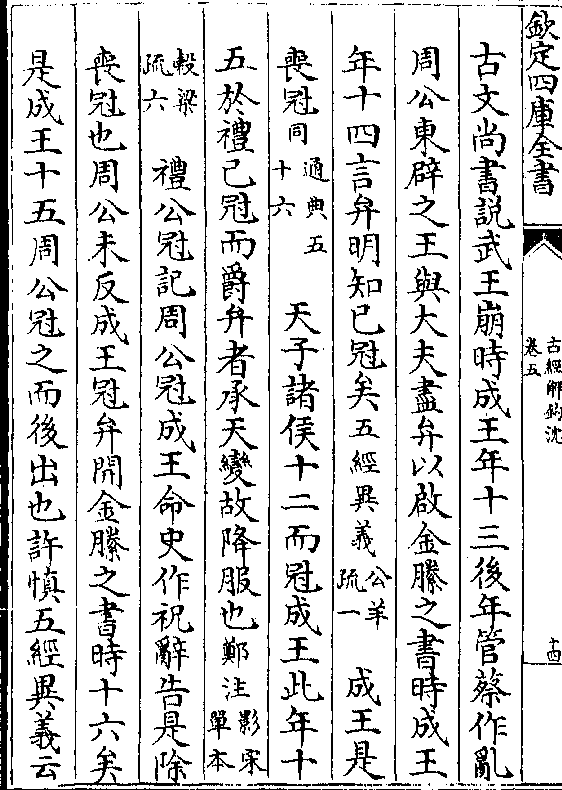 欽定四庫全書
古經解鉤沈
卷五
十四
古文尚書說武王崩時成王年十三後年管蔡作亂
周公東辟之王與大夫盡弁以啟金縢之書時成王
年十四言弁明知已冠矣五經異義公羊疏一　成王是
喪冠同通典五十六　天子諸侯十二而冠成王此年十
五於禮已冠而爵弁者承天變故降服也鄭注影宋單本
穀梁疏六　禮公冠記周公冠成王命史作祝辭告是除
喪冠也周公未反成王冠弁開金縢之書時十六矣
是成王十五周公冠之而後出也許慎五經異義云